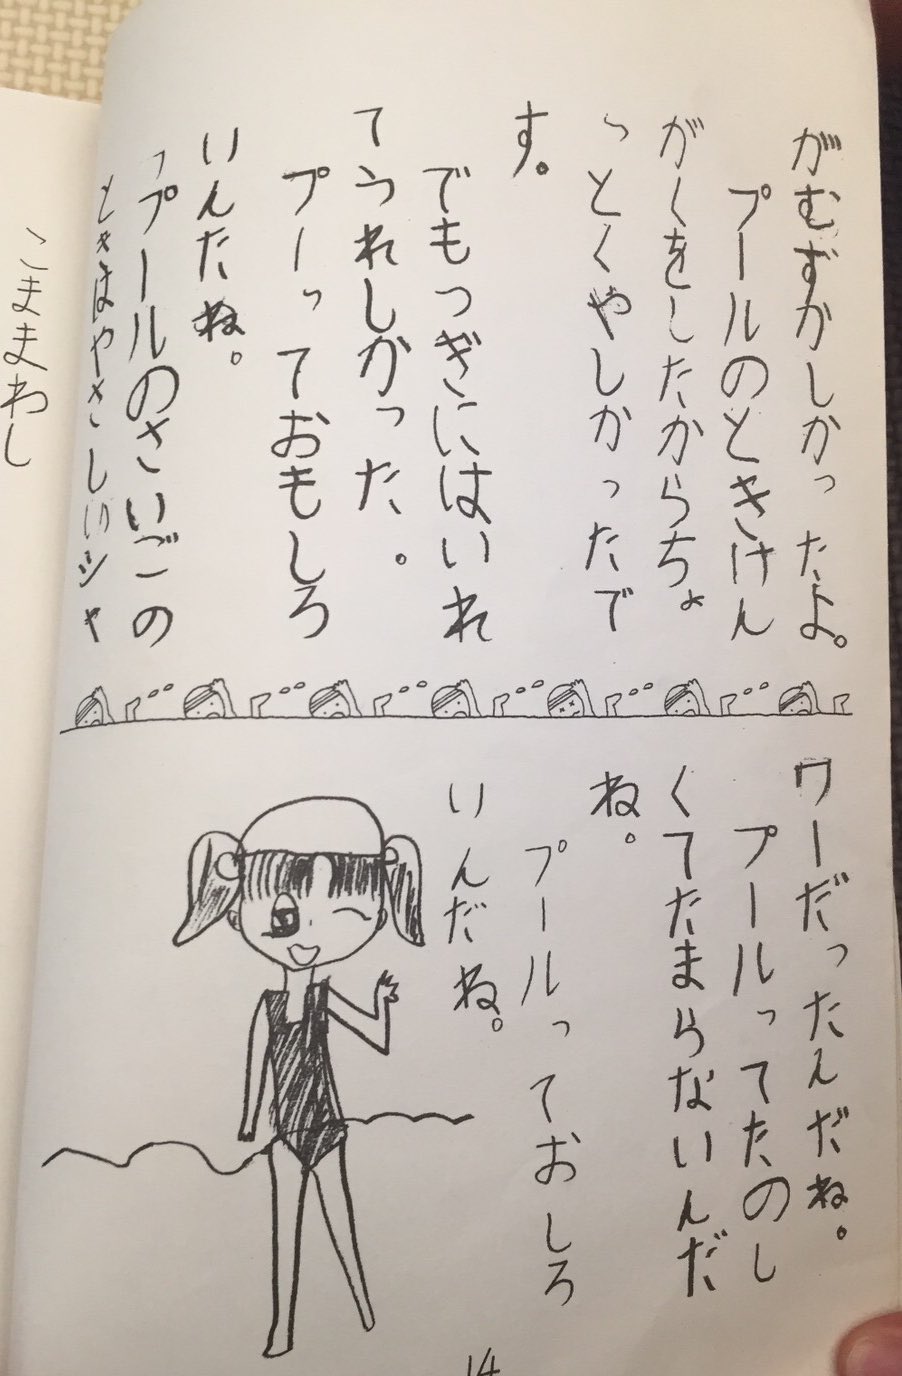 がむずかしかったよ。
プールのときけん
がくをしたからちょ
っとくやしかったで
す。
でもつぎにはいれ
てうれしかった。
プーっておもしろ
いんたね。
「プールのさいごの
ときはやさしいシャ
ワーだったんだね。
プールってたのし
くてたまらないんだ
ね。
プールっておしろ
いんだね。
14
こままわし